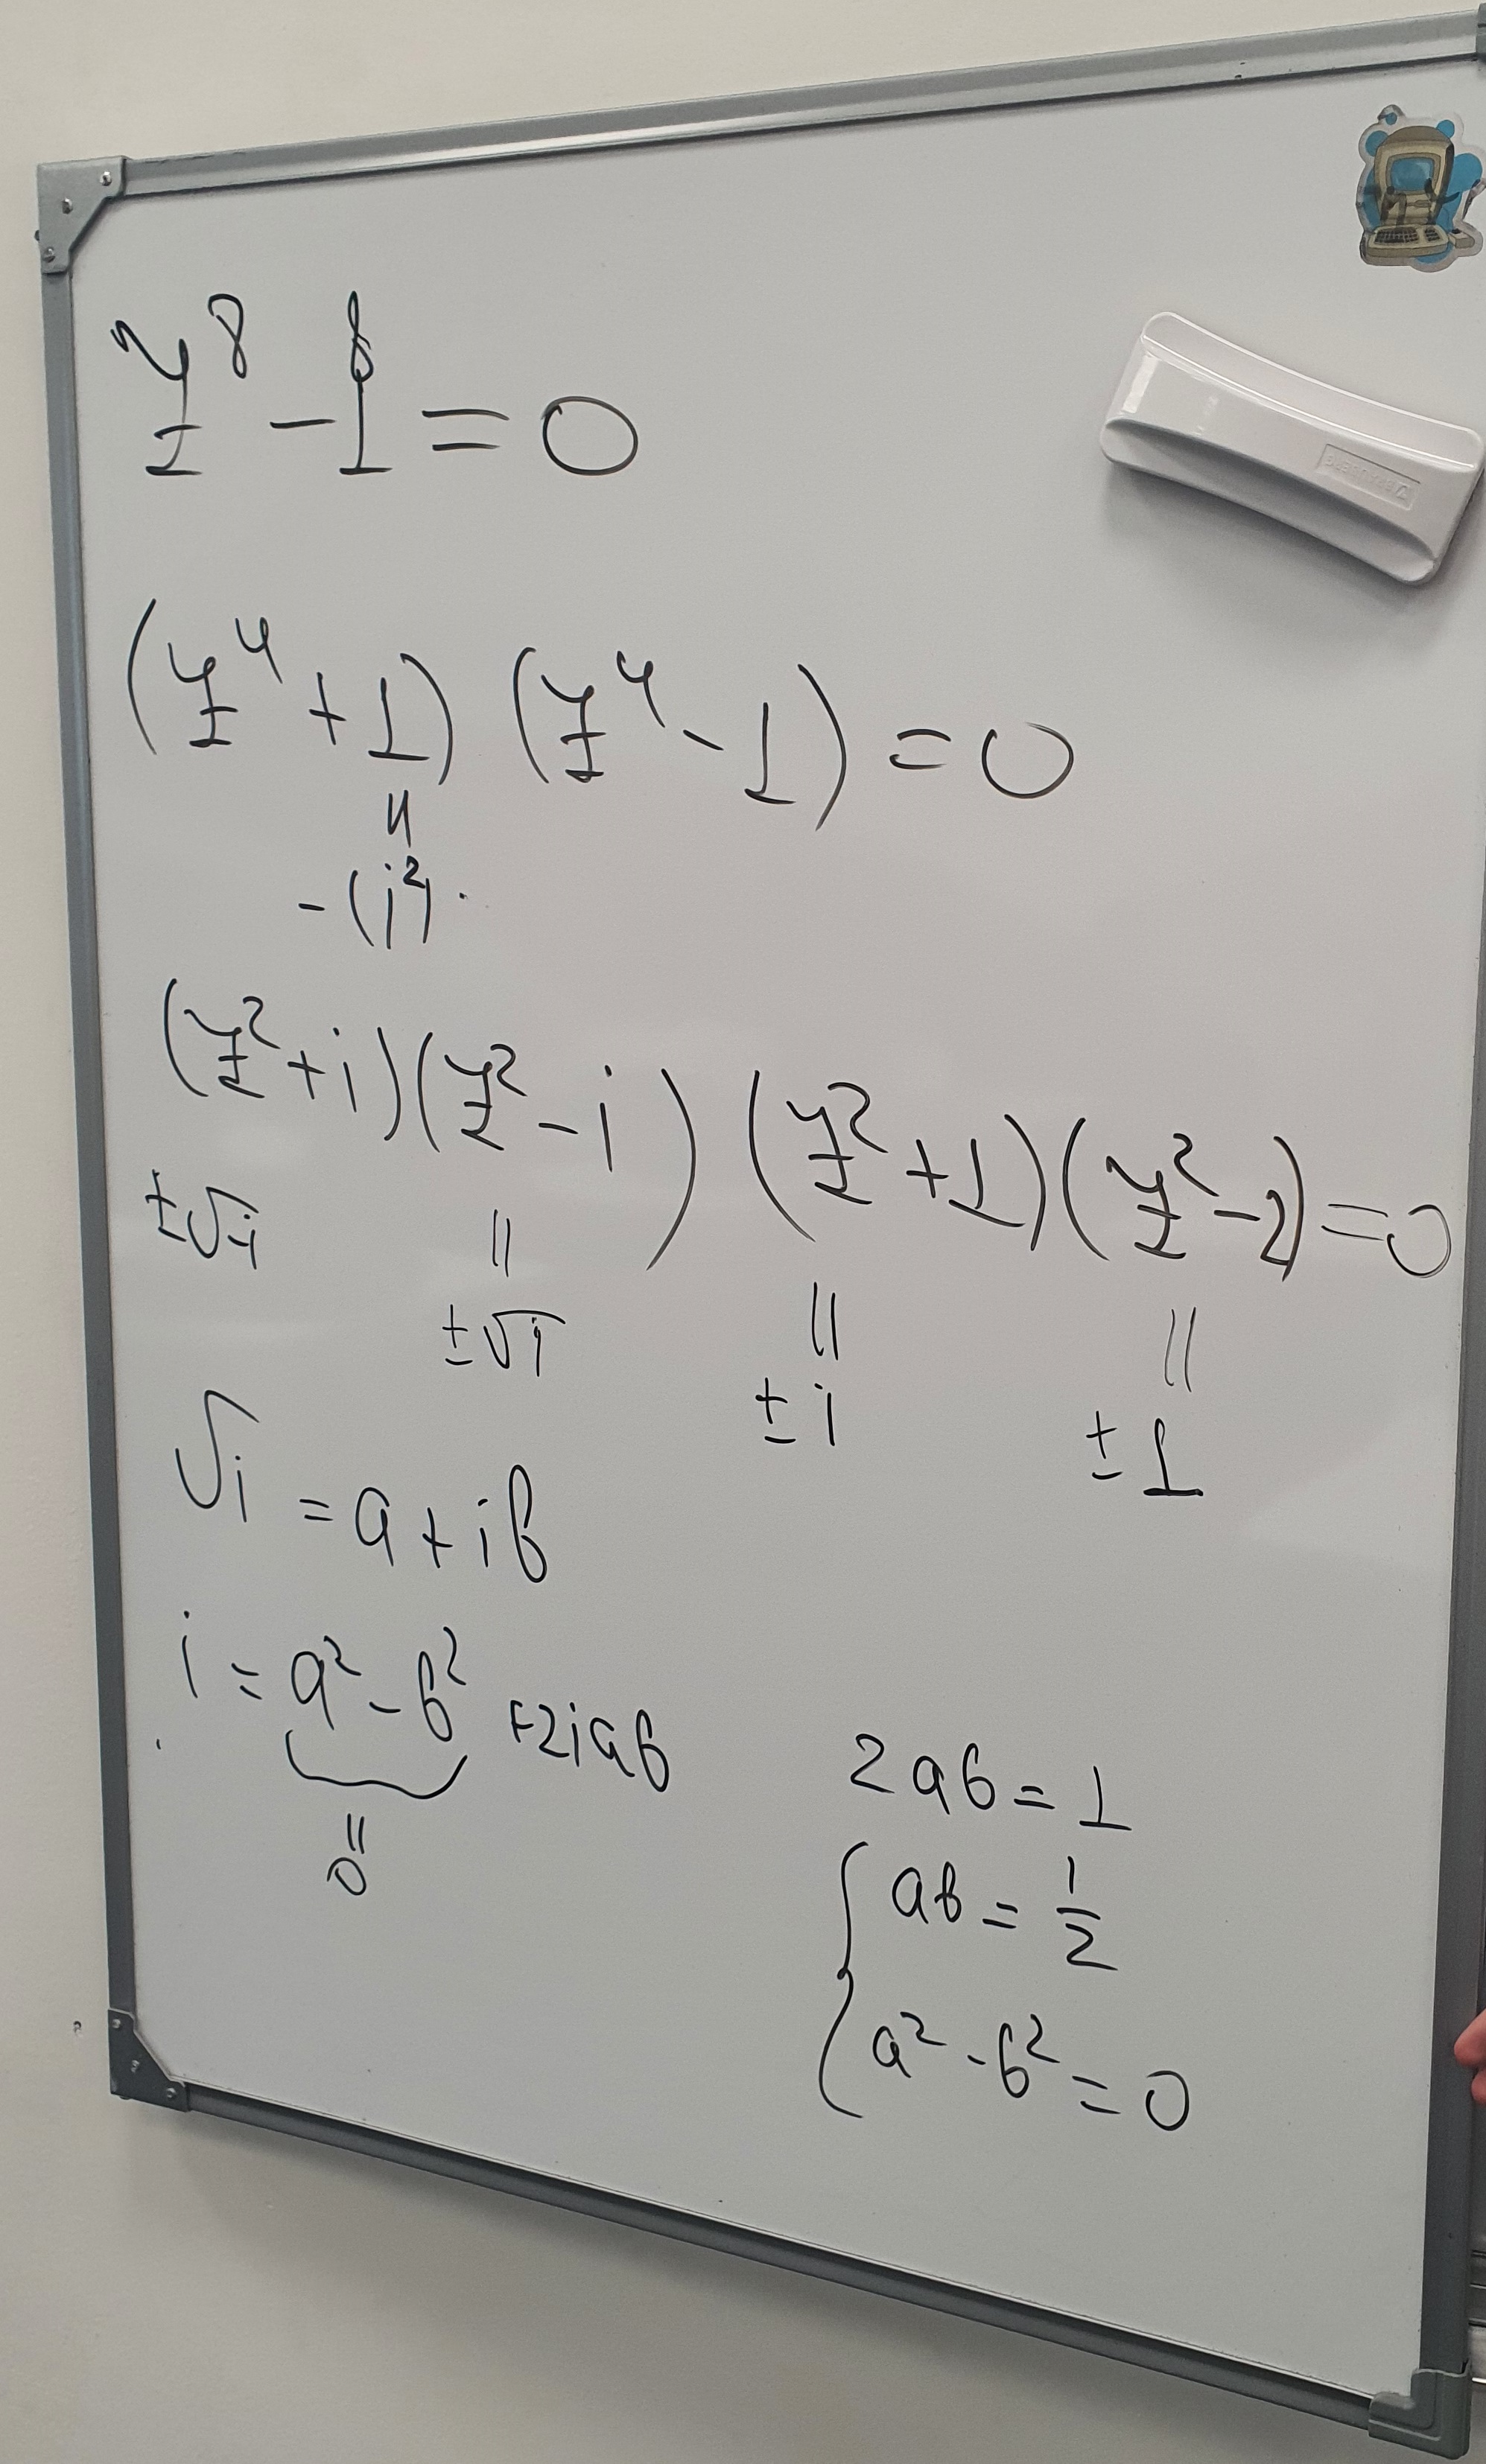 z⁸ - 1⁸ = 0
(z⁴ + 1) (z⁴ - 1) = 0
=
-(i²)
(z² + i)(z² - i) (z² + 1)(z² - 1) = 0
±√-i = ±√i = ±i = ±1
√i = a + ib
i = a² - b² + 2iab
=
0
2ab = 1
ab = 1/2
a² - b² = 0